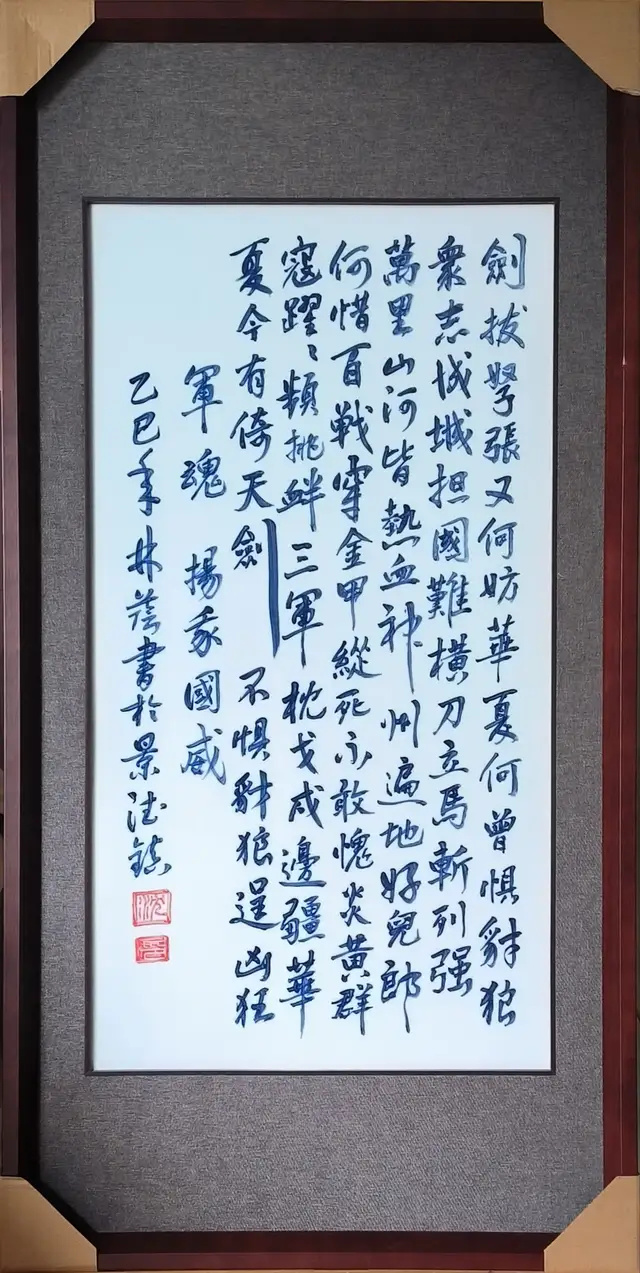 劍拔弩張又何妨華夏何曾懼豺狼
衆志成城担國難橫刀立馬斬列强
萬里山河皆熱血神州遍地好兒郎
何惜百戰穿金甲縱死不敢愧炎黄群
寇躍〻頻挑衅三軍枕戈戍邊疆華
夏今有倚天劍 不懼豺狼逞凶狂
軍魂 揚我國威
乙巳年林蔭書於景德鎮